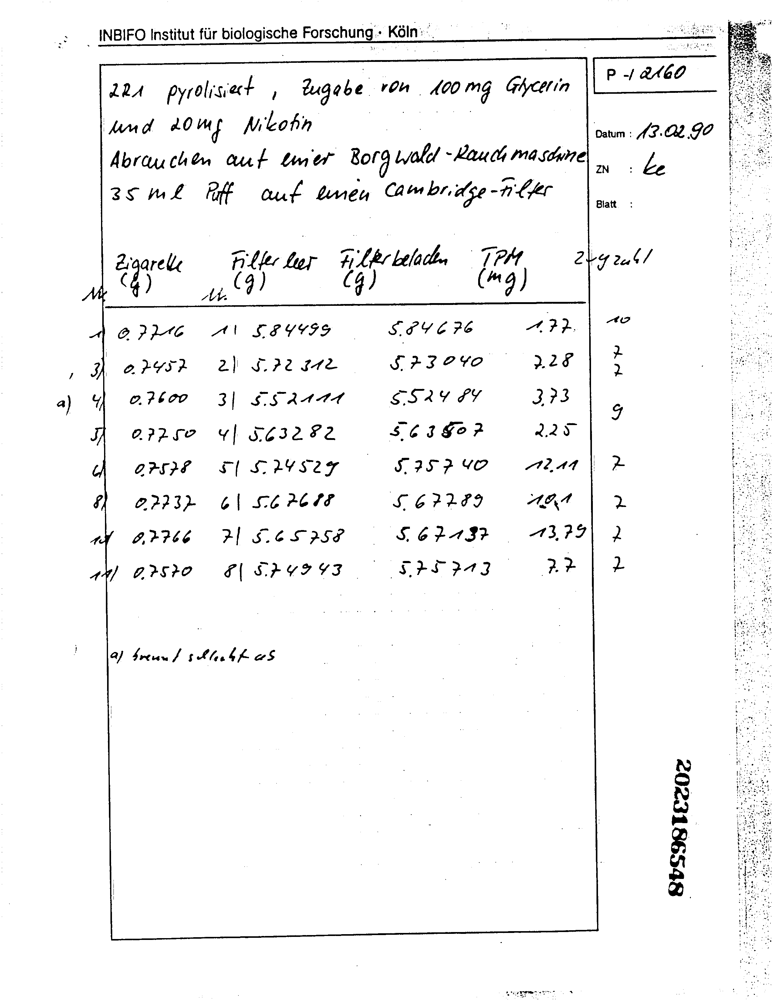 INBIFO Institut für biologische Forschung · Köln
P-1 2160
221 pyrolisiert, Zugabe von 100 mg Glycerin
und 20 mg Nikotin
Datum : 13.02.90
Abrauchen auf einer Borgwald-Rauchmaschine
ZN : ke
35 ml Puff auf einen Cambridge-Filter
Blatt :
Zigarelle Filter leer Filter beladen TPM Zugzahl
Nr. (g) Nr. (g) (g) (mg)
1) 0.7716 1) 5.84499 5.84676 1.77 10
3) 0.7457 2) 5.72312 5.73040 7.28 7 7
a) 4) 0.7600 3) 5.52111 5.52484 3.73
5) 0.7750 4) 5.63282 5.63507 2.25 9
6) 0.7578 5) 5.74529 5.75740 12.11 7
8) 0.7737 6) 5.67688 5.67789 10,1 7
10) 0.7766 7) 5.65758 5.67137 13.79 7
11) 0.7570 8) 5.74943 5.75713 7.7 7
a) brennt schlecht
2023186548